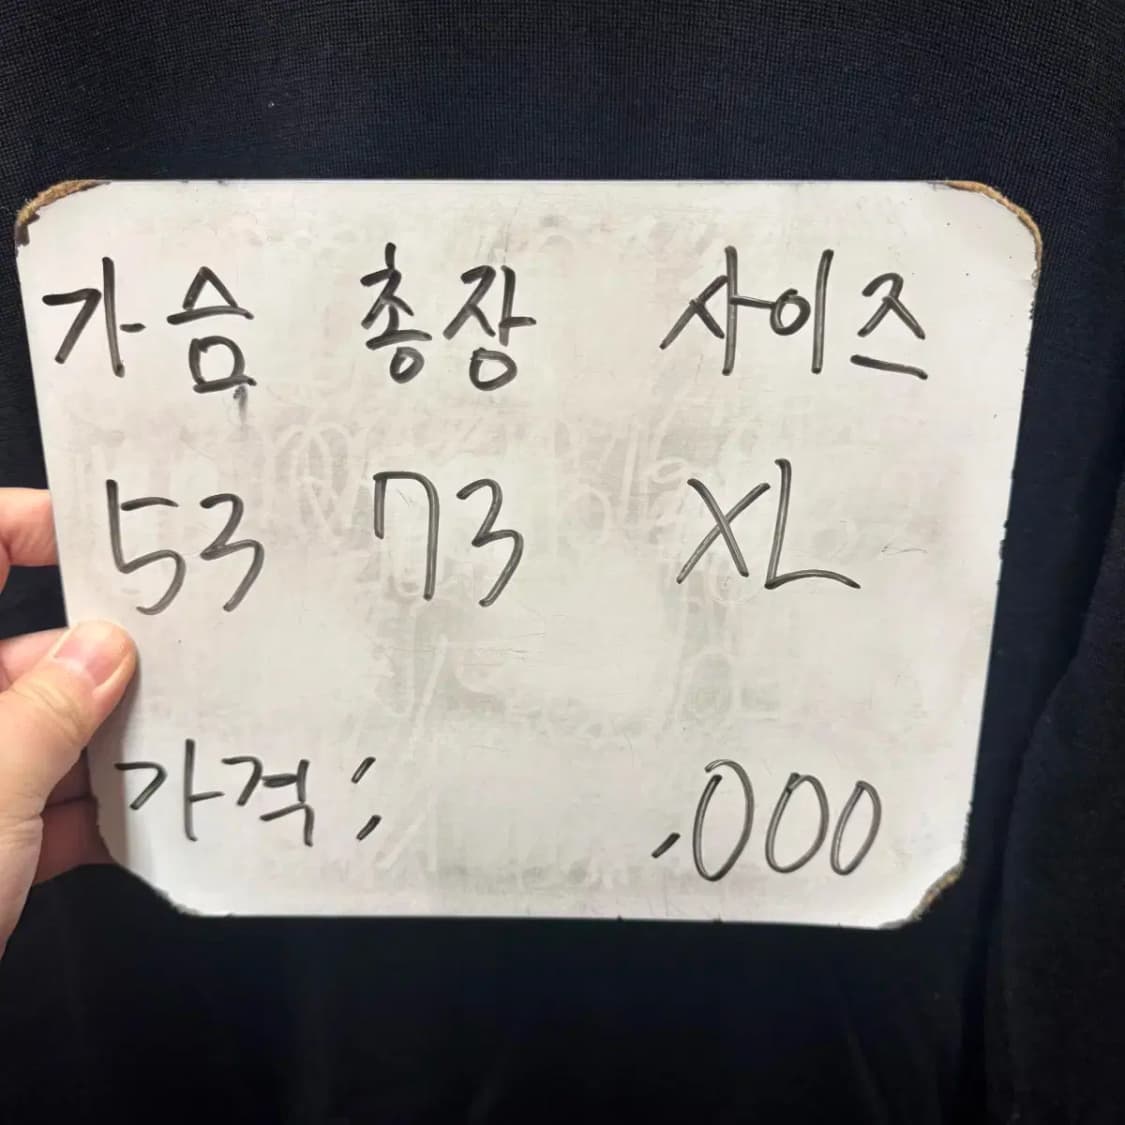 가슴 총장 사이즈
53 73 XL
가격: ,000